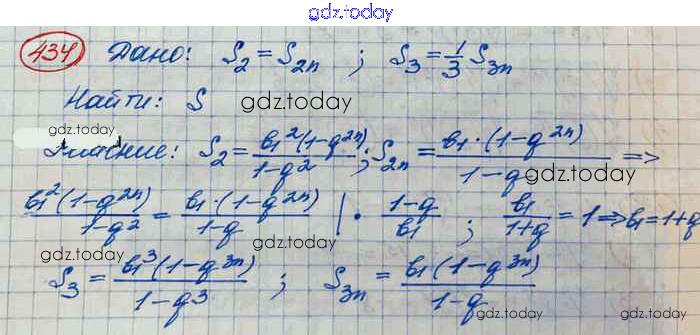 gdz.today
434 Дано: S₂ = S₂ₙ ; S₃ = 1/3 S₃ₙ
Найти: S gdz.today
gdz.today
S₂ = b₁²(1-q²ⁿ)/(1-q²) ; S₂ₙ = b₁·(1-q²ⁿ)/(1-q) =>
gdz.today
b₁²(1-q²ⁿ)/(1-q²) = b₁·(1-q²ⁿ)/(1-q) | · (1-q)/b₁ ; b₁/(1+q) = 1 => b₁ = 1+q
gdz.today gdz.today
S₃ = b₁³(1-q³ⁿ)/(1-q³) ; S₃ₙ = b₁(1-q³ⁿ)/(1-q)
gdz.today gdz.today